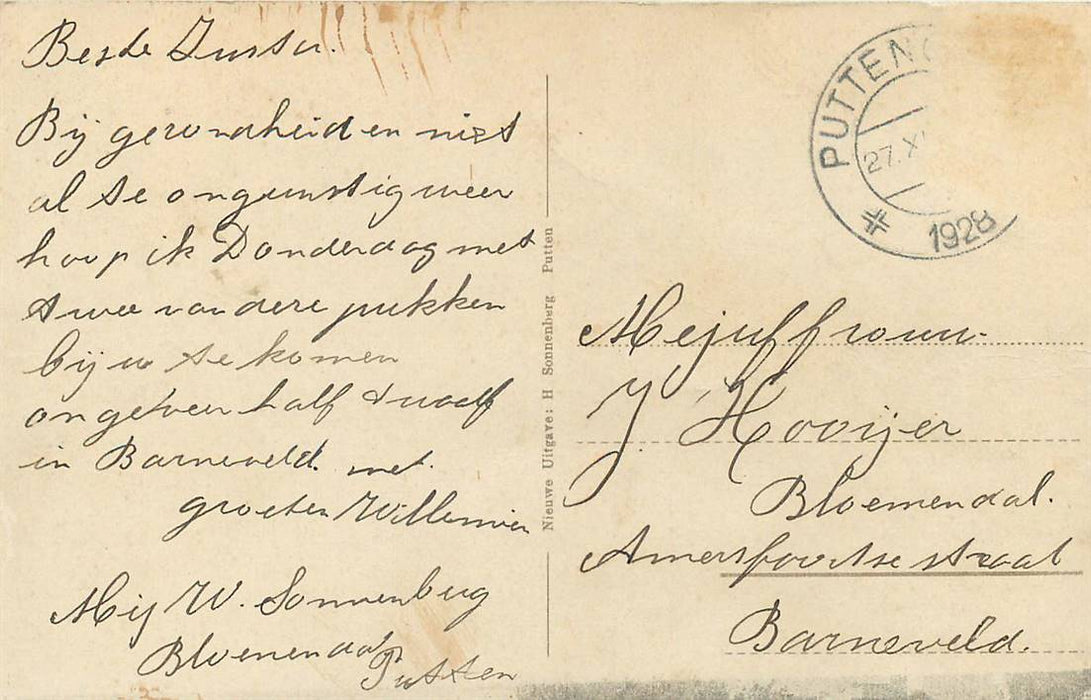 Beste Zuster.
Bij gezondheid en niet
al te ongunstig weer
hoop ik Donderdag met
twee van dere pukken
bij u te komen
ongeveer half twaalf
in Barneveld. met.
groeten Willemien
Mej W. Sonnenberg
Bloemendal
Putten
Nieuwe Uitgave: H Sonnenberg Putten
PUTTEN
27.X
1928
Mejuffrouw.
J. Hooijer
Bloemendal.
Amersfoortse straat
Barneveld.